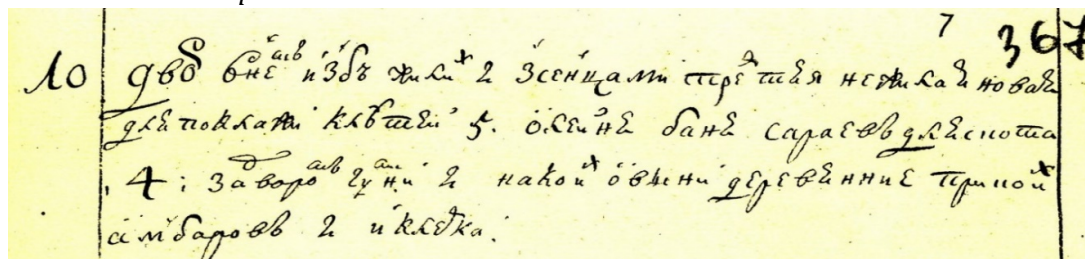 7 367
10 дво в не изъ жилых 2 з сенцами третия нежилая новая
для поклажи клѣтей 5. баня сараевъ для скота
4: за дворо гумни 2 на кой овини деревянние при нои
амбаровъ 2 и клетка.